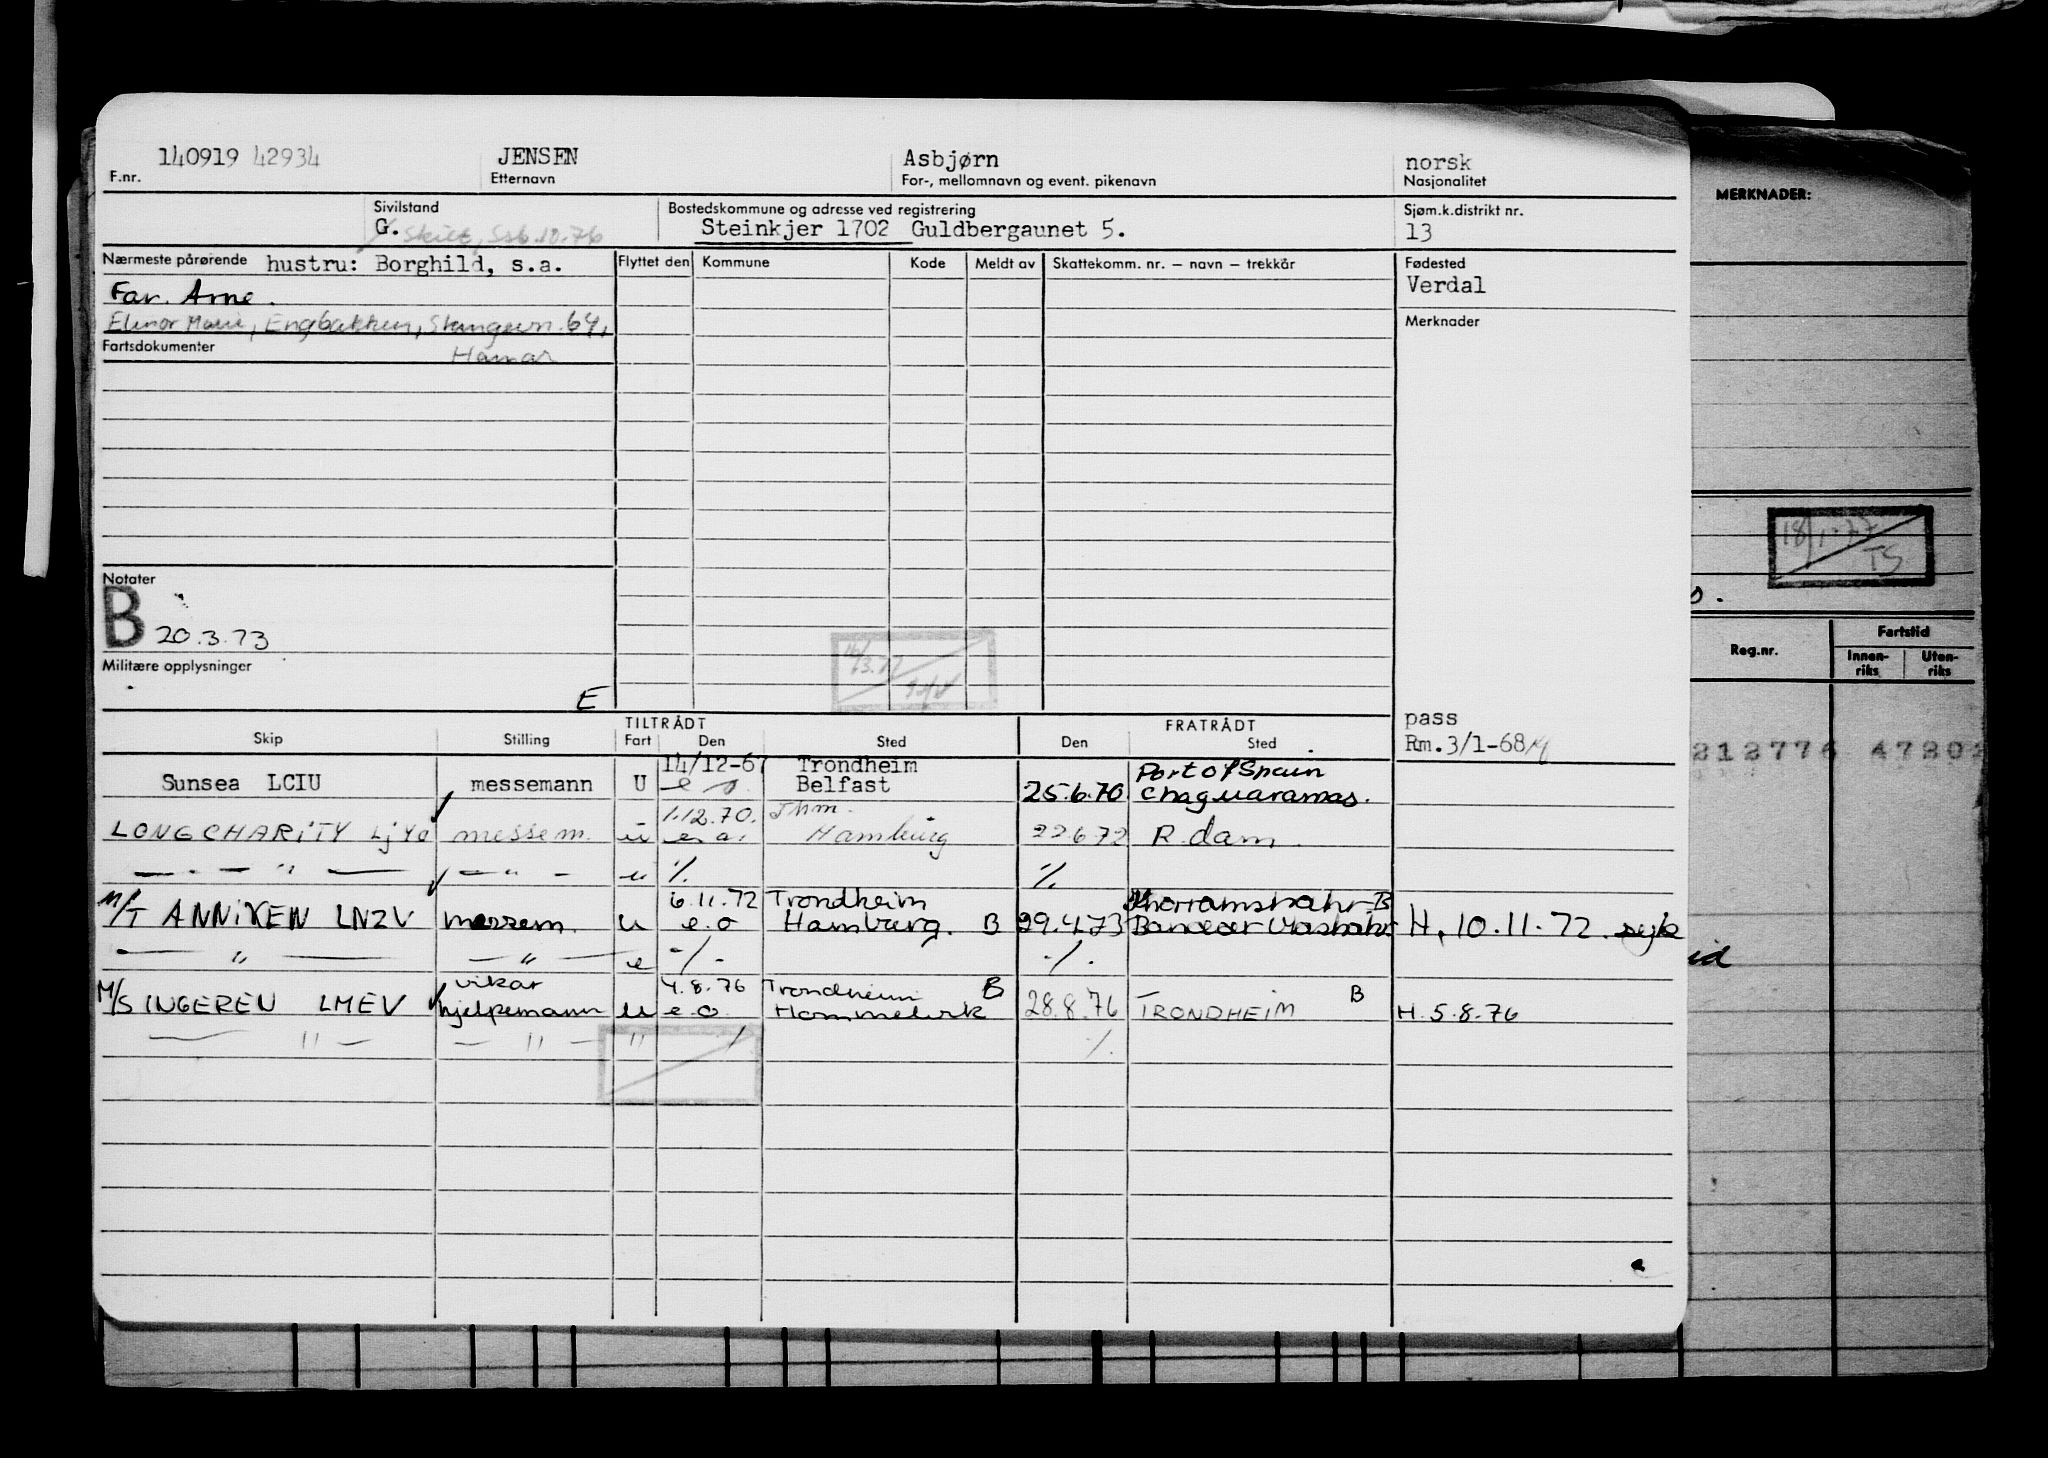 140919 42934 JENSEN Asbjørn norsk
F.nr. Etternavn For-, mellomnavn og event. pikenavn Nasjonalitet
Sivilstand Bostedskommune og adresse ved registrering Sjøm.k.distrikt nr.
G. Skilt, Ssb.10.76 Steinkjer 1702 Guldbergaunet 5. 13
Nærmeste pårørende hustru: Borghild, s.a. Flyttet den Kommune Kode Meldt av Skattekomm. nr. – navn – trekkår Fødested
Verdal
Far. Arne.
Elinor Marie, Engbakken, Stangevn. 64, Merknader
Fartsdokumenter Hamar
Notater
B 20.3.73
Militære opplysninger
E
TILTRÅDT FRATRÅDT pass
Skip Stilling Fart Den Sted Den Sted Rm. 3/1-68
14/12-67 Trondheim Port of Spain
Sunsea LCIU messemann U e o. Belfast 25.6.70 Chaguaramas.
1.12.70. Thm.
LONG CHARITY LjYo messem. u e.o. Hamburg 22.6.72 R.dam
— " — — " — u ٪. ٪.
6.11.72 Trondheim Khorramshahr B
M/T ANNIKEN LNZV messem. u e.o Hamburg. B 29.4.73 Bandar Mashahr H. 10.11.72
— " — — " — e -/- ٪.
vikar 4.8.76 Trondheim B B
M/S INGEREN LMEV hjelpemann u e.o. Hommelvik 28.8.76 TRONDHEIM H. 5.8.76
— " — — " — " ٪ ٪.
MERKNADER:
18/1-77
TS
Reg.nr. Fartstid
Innen-riks Uten-riks
212776